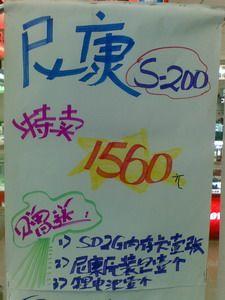 尼康
S-200
特卖
1560元
赠送:
1) SD2G内存卡壹张
2) 尼康
3) 锂电池壹个